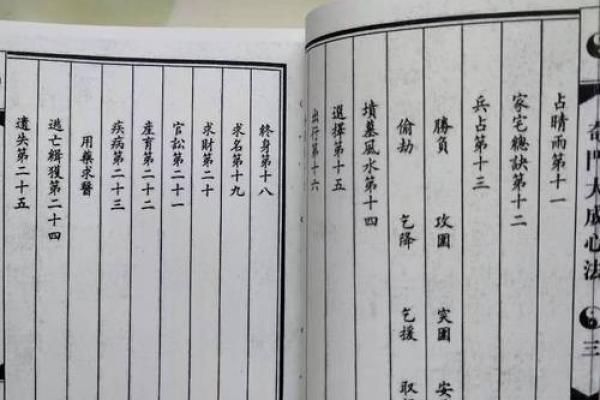 奇門大成心法
三
占晴雨第十一
家宅總訣第十二
兵占第十三
勝負 攻圍 突圍 安
偷劫 乞降 乞援 取
墳墓風水第十四
選擇第十五
出行第十六
終身第十八
求名第十九
求財第二十
官訟第二十一
産育第二十二
疾病第二十三
用藥求醫
逃亡緝獲第二十四
遺失第二十五